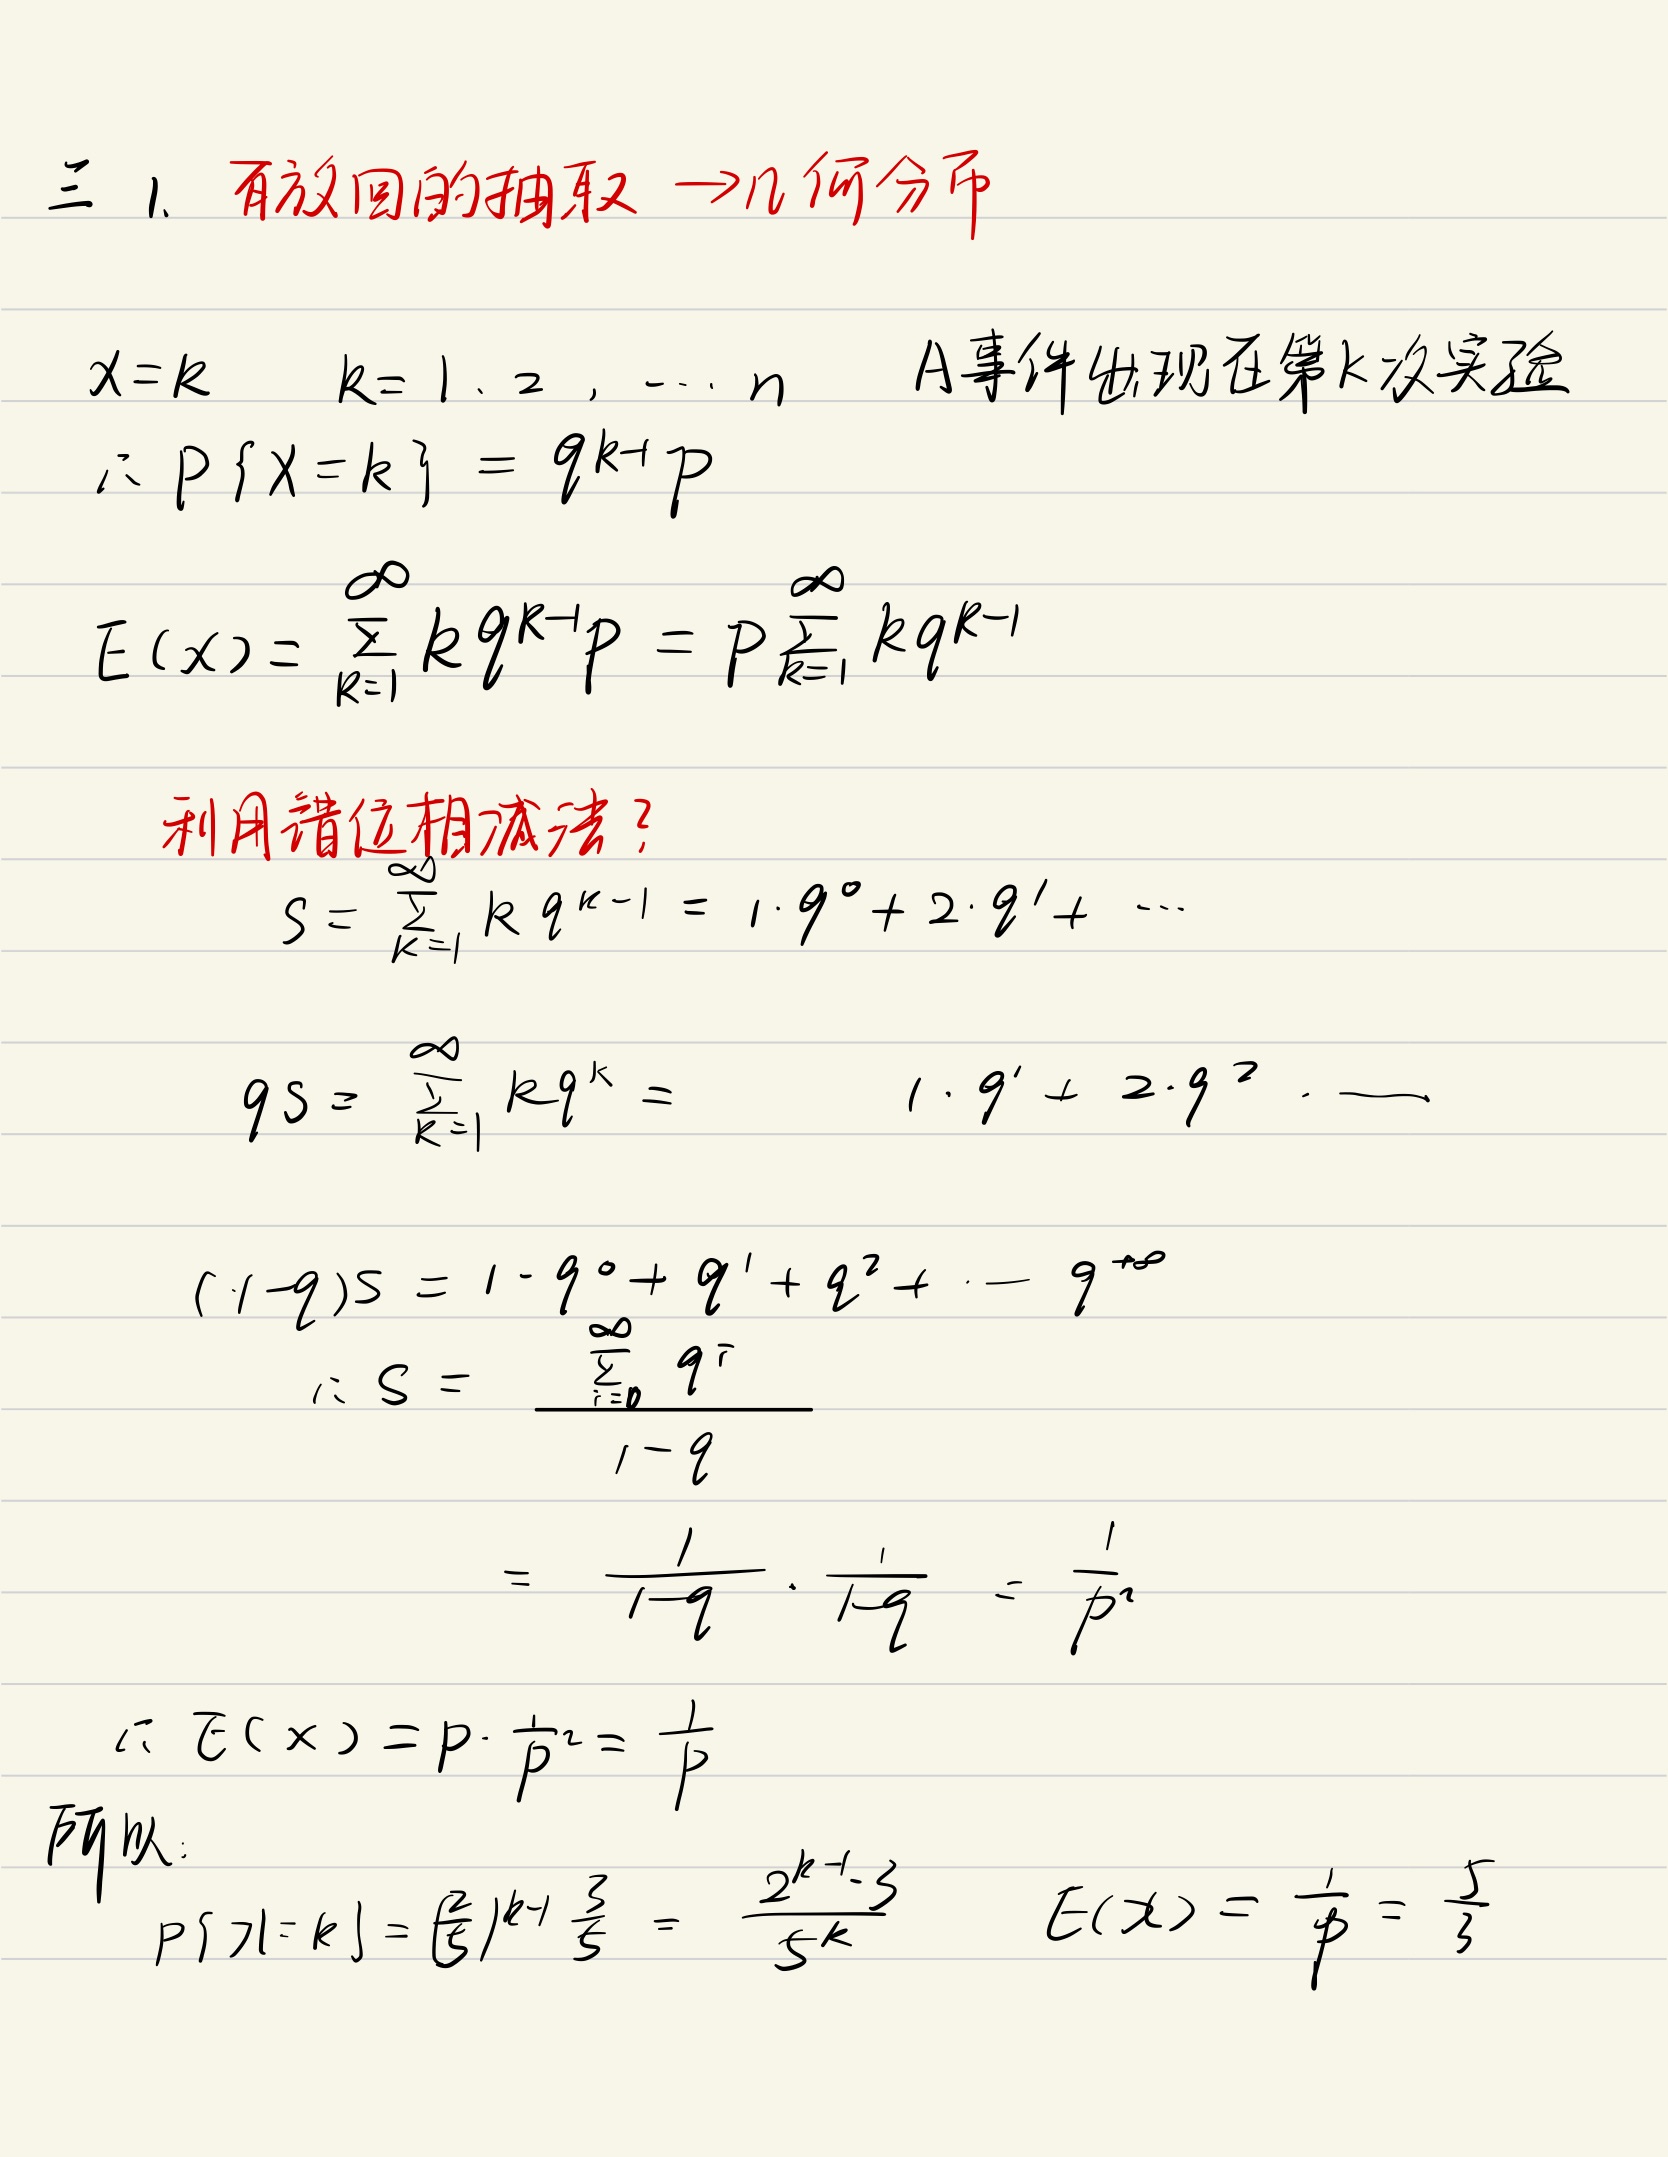 三 1、有放回的抽取 →几何分布
x=k k=1、2，… n A事件出现在第k次实验
∴ P{X=k} = q^{k-1} p
E(x) = \sum_{k=1}^{∞} k q^{k-1} p = p \sum_{k=1}^{∞} k q^{k-1}
利用错位相减法？
S = \sum_{k=1}^{∞} k q^{k-1} = 1·q^0 + 2·q^1 + …
qS = \sum_{k=1}^{∞} k q^k = 1·q^1 + 2·q^2 ·—
(1-q)S = 1·q^0 + q^1 + q^2 + ·— q^{+∞}
∴ S = \frac{\sum_{i=0}^{∞} q^i}{1-q}
= \frac{1}{1-q} · \frac{1}{1-q} = \frac{1}{p^2}
∴ E(x) = p·\frac{1}{p^2} = \frac{1}{p}
所以：
P{X=k} = (\frac{2}{5})^{k-1} \frac{3}{5} = \frac{2^{k-1}·3}{5^k} E(x) = \frac{1}{p} = \frac{5}{3}